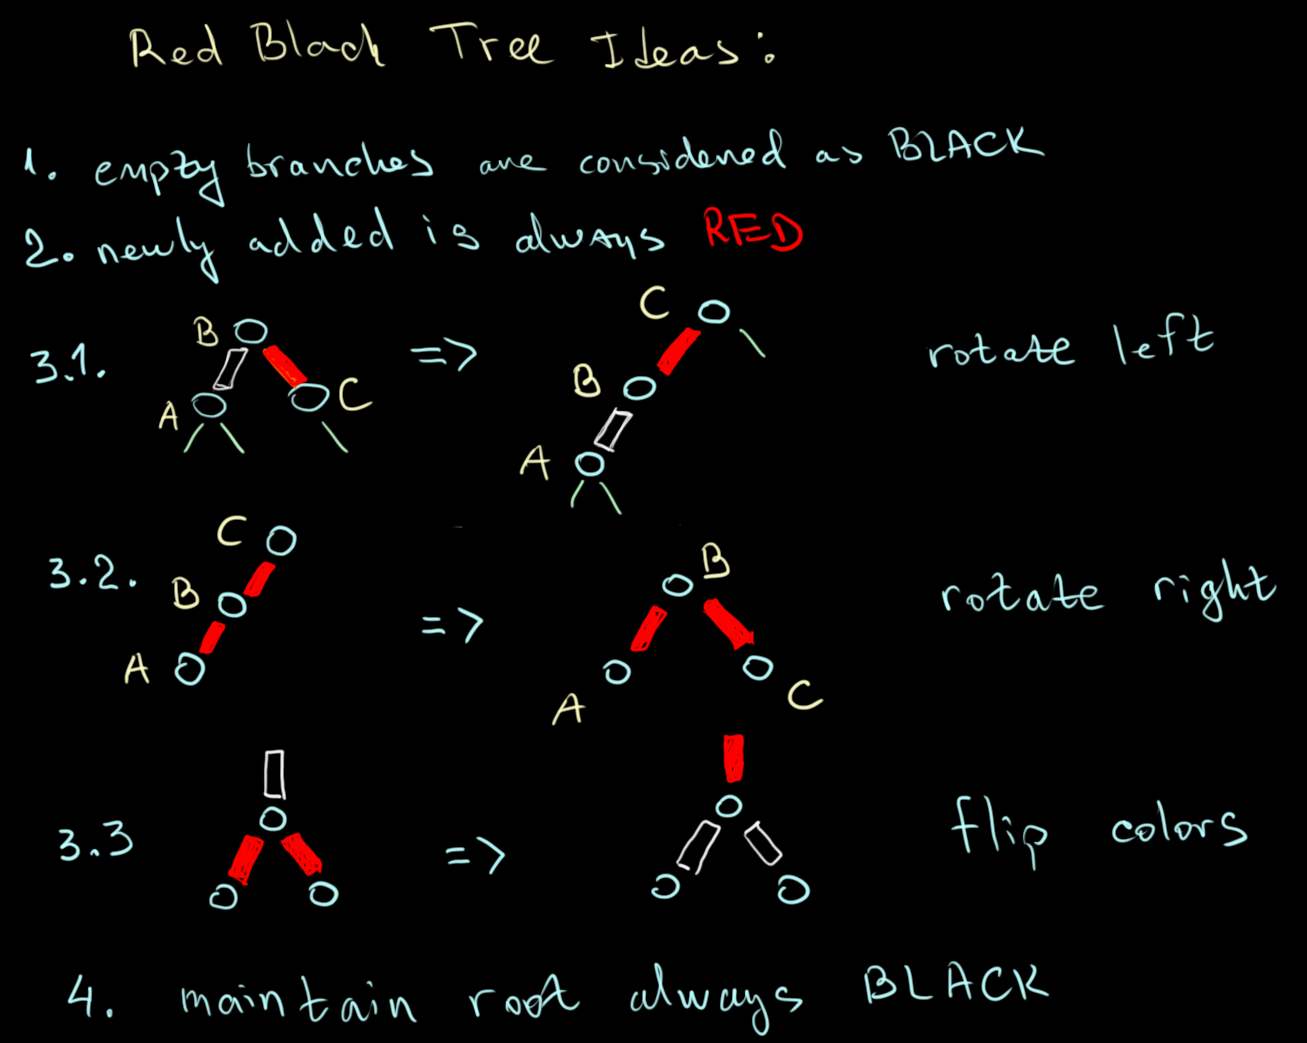 Red Black Tree Ideas:
1. empty branches are considered as BLACK
2. newly added is always RED
3.1. B A C => C B A rotate left
3.2. C B A => B A C rotate right
3.3 => flip colors
4. maintain root always BLACK